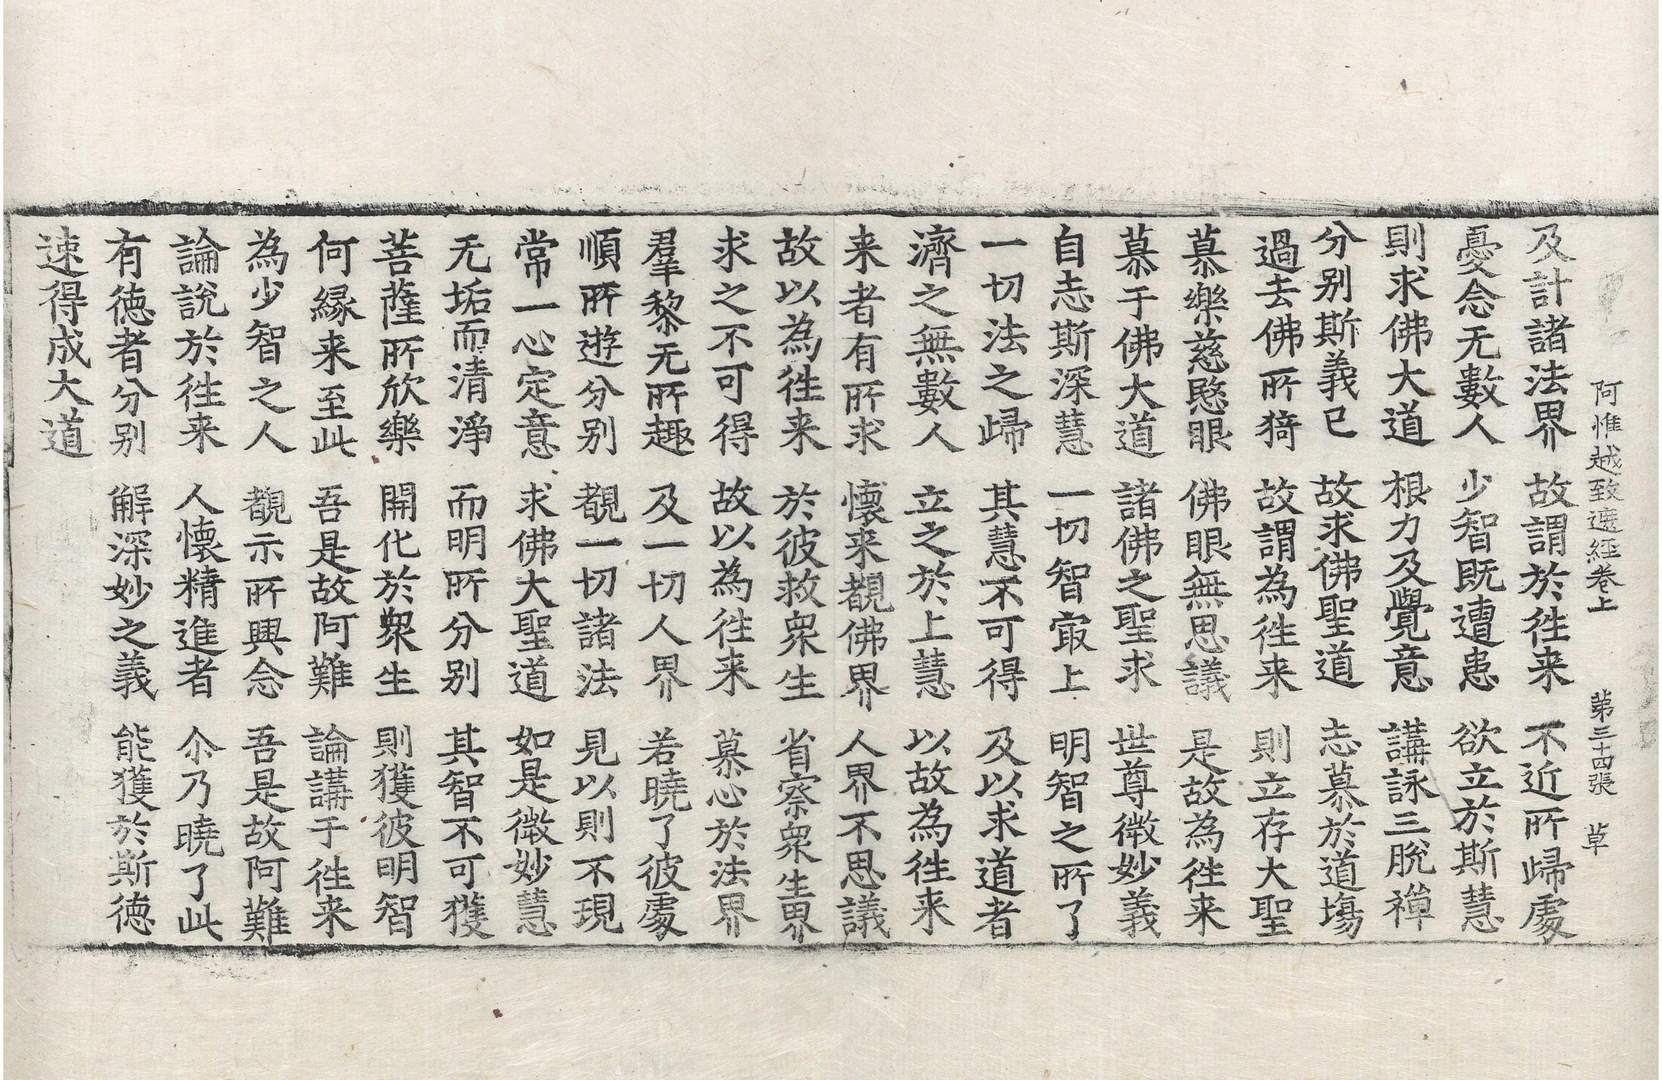 阿惟越致遮經卷上 第三十四張 草
及計諸法界 故謂於徃来 不近所歸處
憂念无數人 少智旣遭患 欲立於斯慧
則求佛大道 根力及覺意 講詠三脫禪
分別斯義已 故求佛聖道 志慕於道場
過去佛所猗 故謂為徃来 則立存大聖
慕樂慈愍眼 佛眼無思議 是故為徃来
慕于佛大道 諸佛之聖求 世尊微妙義
自志斯深慧 一切智㝡上 明智之所了
一切法之歸 其慧不可得 及以求道者
濟之無數人 立之於上慧 以故為徃来
来者有所求 懷来覩佛界 人界不思議
故以為徃来 於彼救衆生 省察衆生界
求之不可得 故以為徃来 慕心於法界
羣黎无所趣 及一切人界 若曉了彼處
順所遊分別 覩一切諸法 見以則不現
常一心定意 求佛大聖道 如是微妙慧
无垢而清淨 而明所分別 其智不可獲
菩薩所欣樂 開化於衆生 則獲彼明智
何緣来至此 吾是故阿難 論講于徃来
為少智之人 覩示所興念 吾是故阿難
論說於徃来 人懷精進者 尒乃曉了此
有德者分別 解深妙之義 能獲於斯德
速得成大道